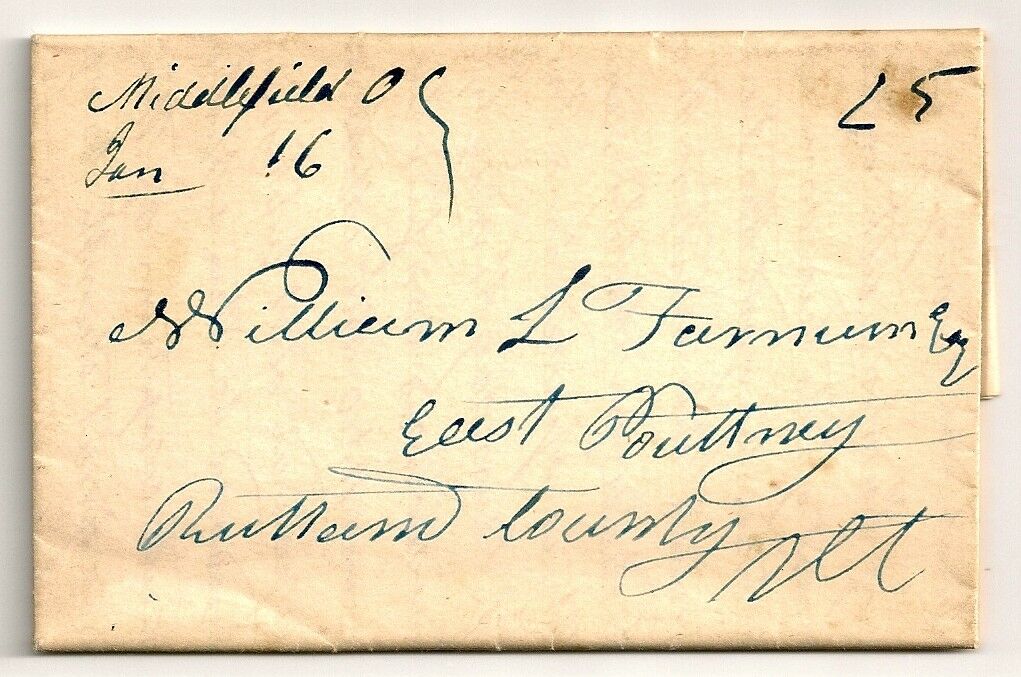 Middlefield O
Jan 16
25
William L Farnum Esq
East Poultney
Rutland County Vt